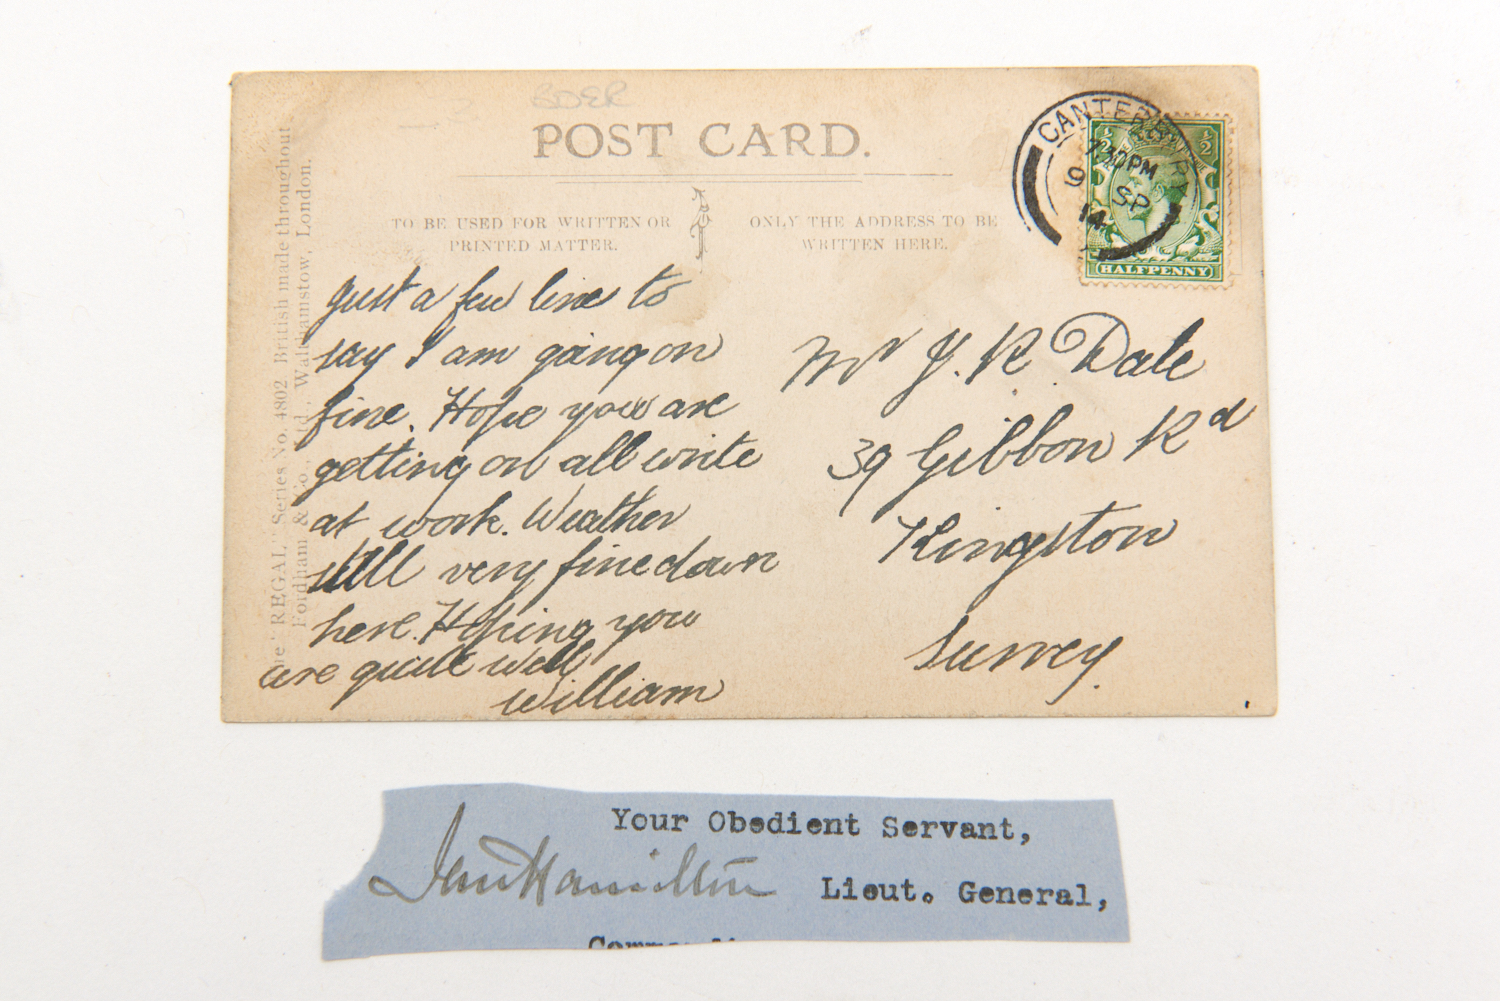 BOER
POST CARD.
TO BE USED FOR WRITTEN OR
PRINTED MATTER.
ONLY THE ADDRESS TO BE
WRITTEN HERE.
CANTERBURY
7.30PM
9 SP
14
½ ½
HALFPENNY
"REGAL" Series No. 4802 British made throughout
Fordham & Co., Ltd., Walthamstow, London.
Just a few lines to
say I am going on
fine. Hope you are
getting on all write
at work. Weather
still very fine down
here. Hoping you
are quite well
William
Mr J. R Dale
39 Gibbon Rd
Kingston
Surrey.
Your Obedient Servant,
Ian Hamilton
Lieut. General,